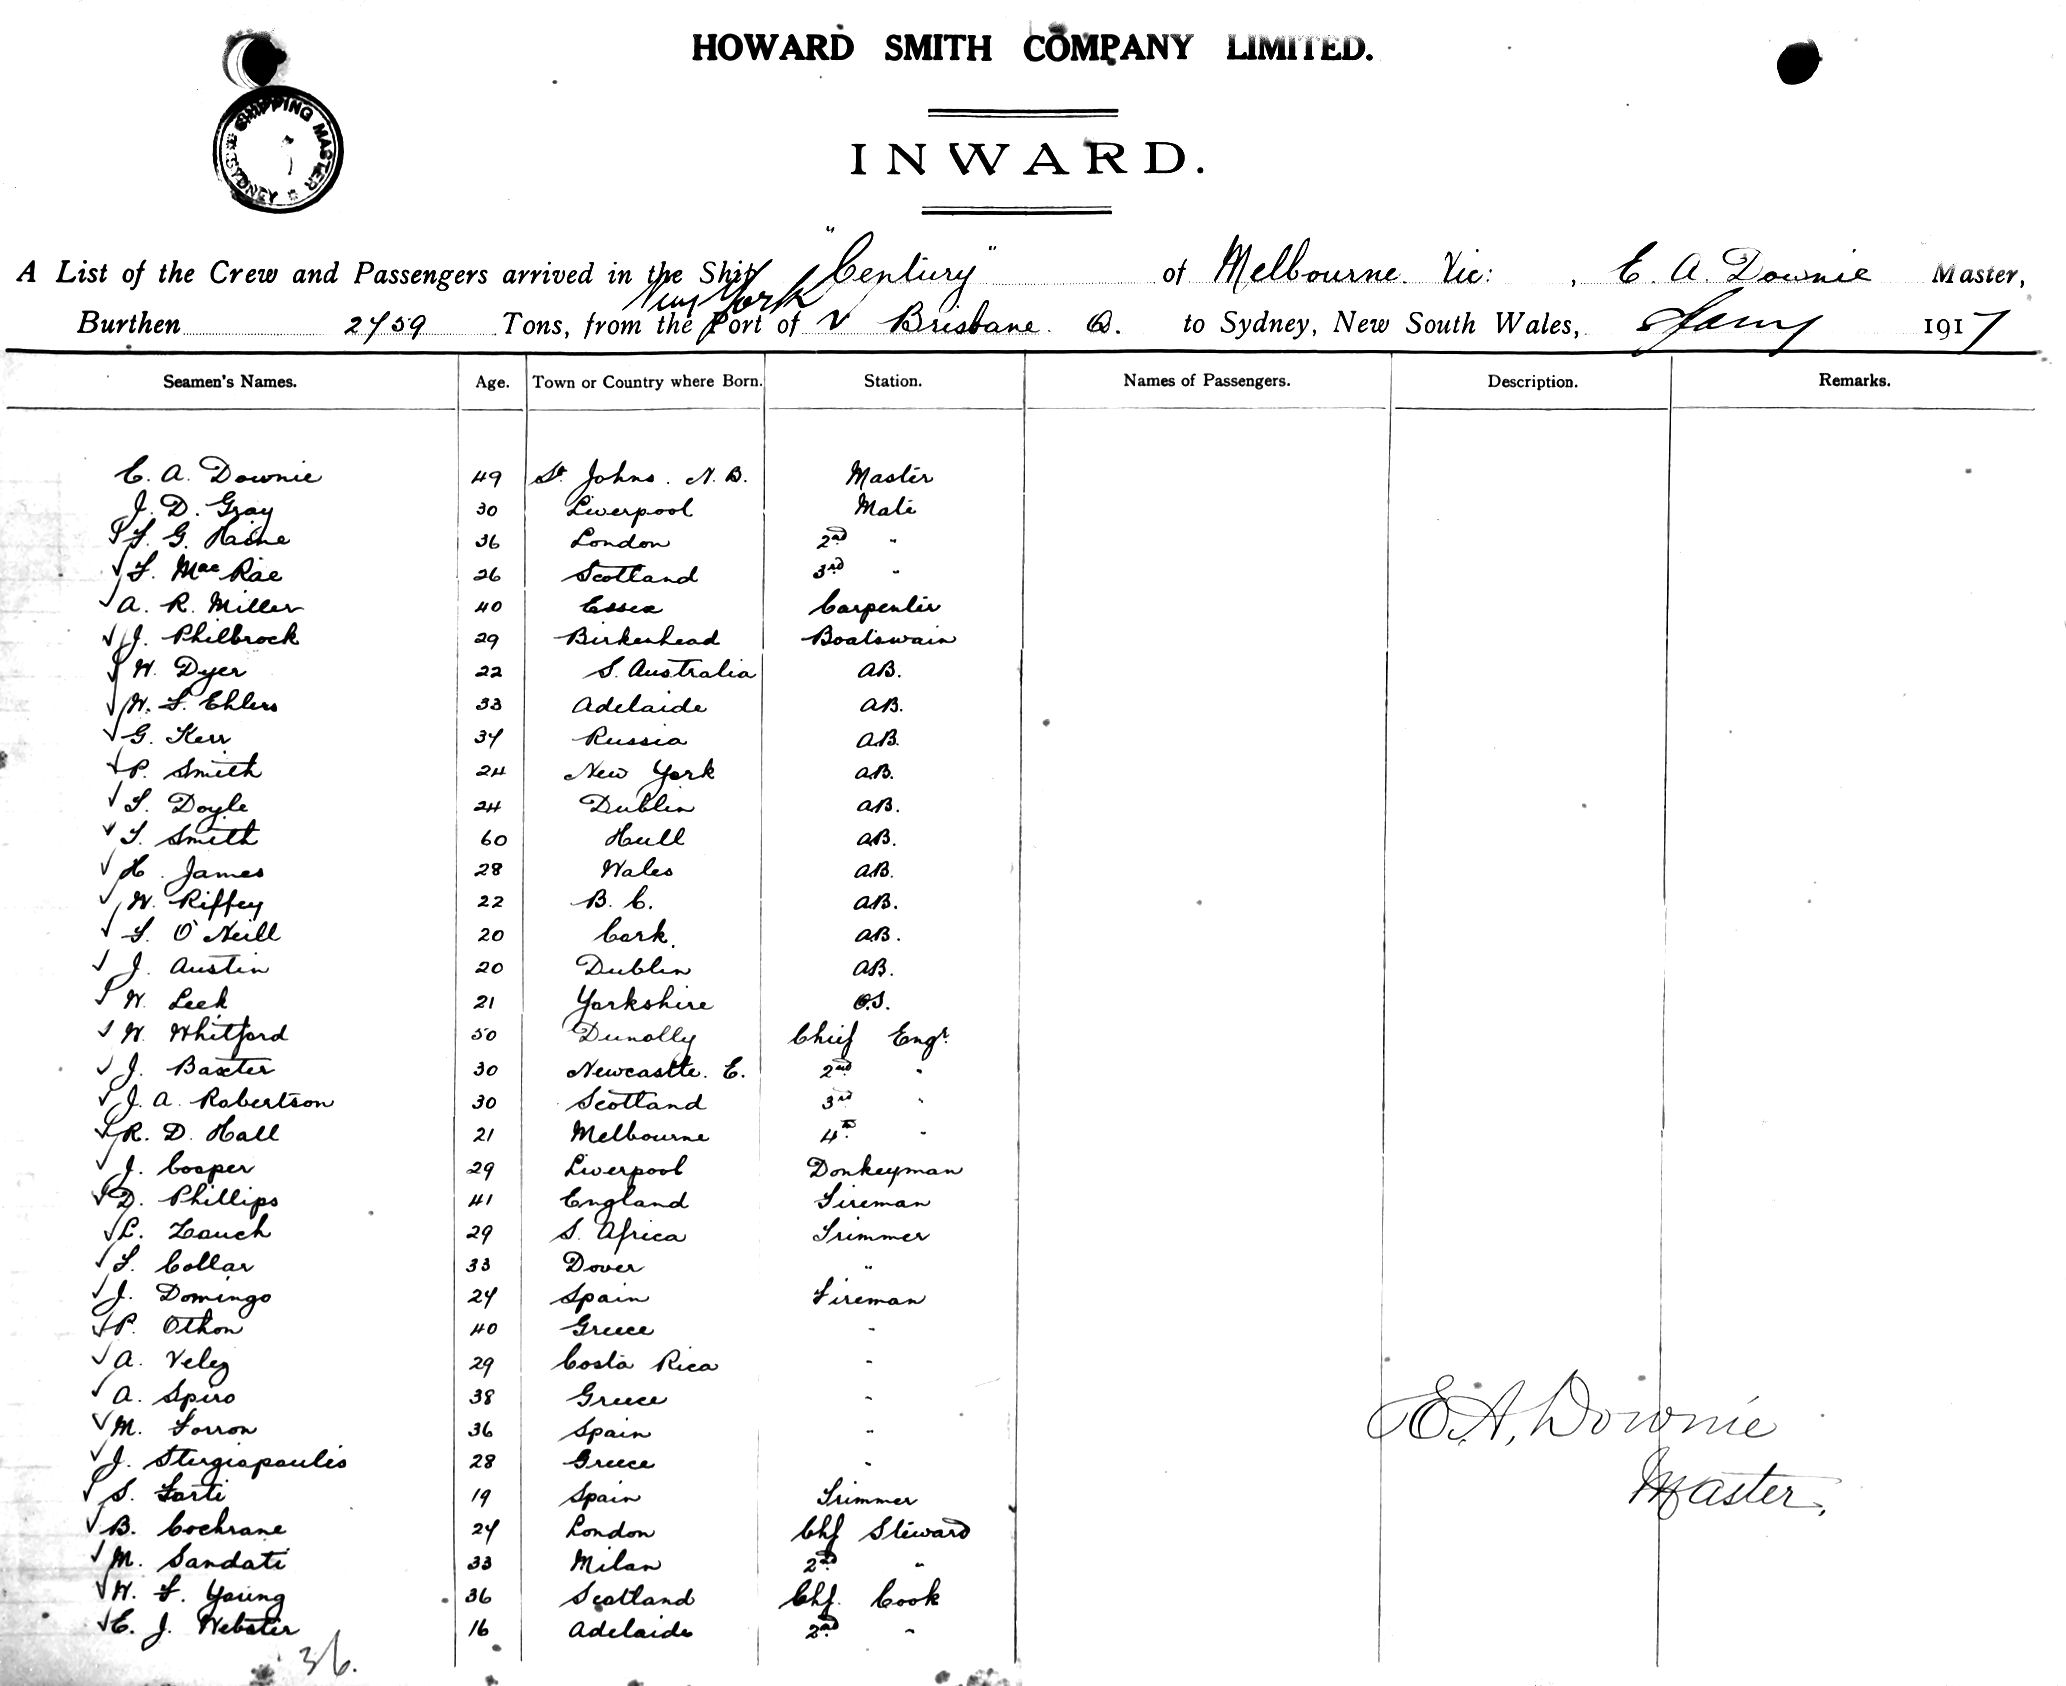 HOWARD SMITH COMPANY LIMITED.
SHIPPING MASTER SYDNEY
INWARD.
A List of the Crew and Passengers arrived in the Ship "Century" of Melbourne. Vic: , E. A. Downie Master,
New York
Burthen 2759 Tons, from the Port of v Brisbane. Q. to Sydney, New South Wales, 1917
Seamen's Names. Age. Town or Country where Born. Station. Names of Passengers. Description. Remarks.
E. A. Downie 49 St Johns. N. B. Master
J. D. Gray 30 Liverpool Mate
F. G. Raine 36 London 2nd "
F. MacRae 26 Scotland 3rd "
A. R. Miller 40 Essex Carpenter
J. Philbrock 29 Birkenhead Boatswain
W. Dyer 22 S. Australia AB.
W. F. Ehlers 33 Adelaide AB.
G. Kerr 37 Russia AB.
P. Smith 24 New York AB.
T. Doyle 24 Dublin AB.
T. Smith 60 Hull AB.
H. James 28 Wales AB.
W. Riffey 22 B. C. AB.
T. O'Neill 20 Cork. AB.
J. Austin 20 Dublin AB.
W. Leek 21 Yorkshire O.S.
W. Whitford 50 Dunolly Chief Engr.
J. Baxter 30 Newcastle. E. 2nd "
J. A. Robertson 30 Scotland 3rd "
R. D. Hall 21 Melbourne 4th "
J. Cooper 29 Liverpool Donkeyman
D. Phillips 41 England Fireman
L. Zauch 29 S. Africa Trimmer
F. Collar 33 Dover "
J. Domingo 27 Spain Fireman
P. Othon 40 Greece "
A. Velez 29 Costa Rica "
A. Spiro 38 Greece "
M. Forron 36 Spain "
J. Sturgiopoulis 28 Greece "
S. Farti 19 Spain Trimmer
B. Cochrane 27 London Chf Steward
M. Sandati 33 Milan 2nd "
W. F. Young 36 Scotland Chf. Cook
E. J. Webster 16 Adelaide 2nd "
36.
E. A. Downie
Master.